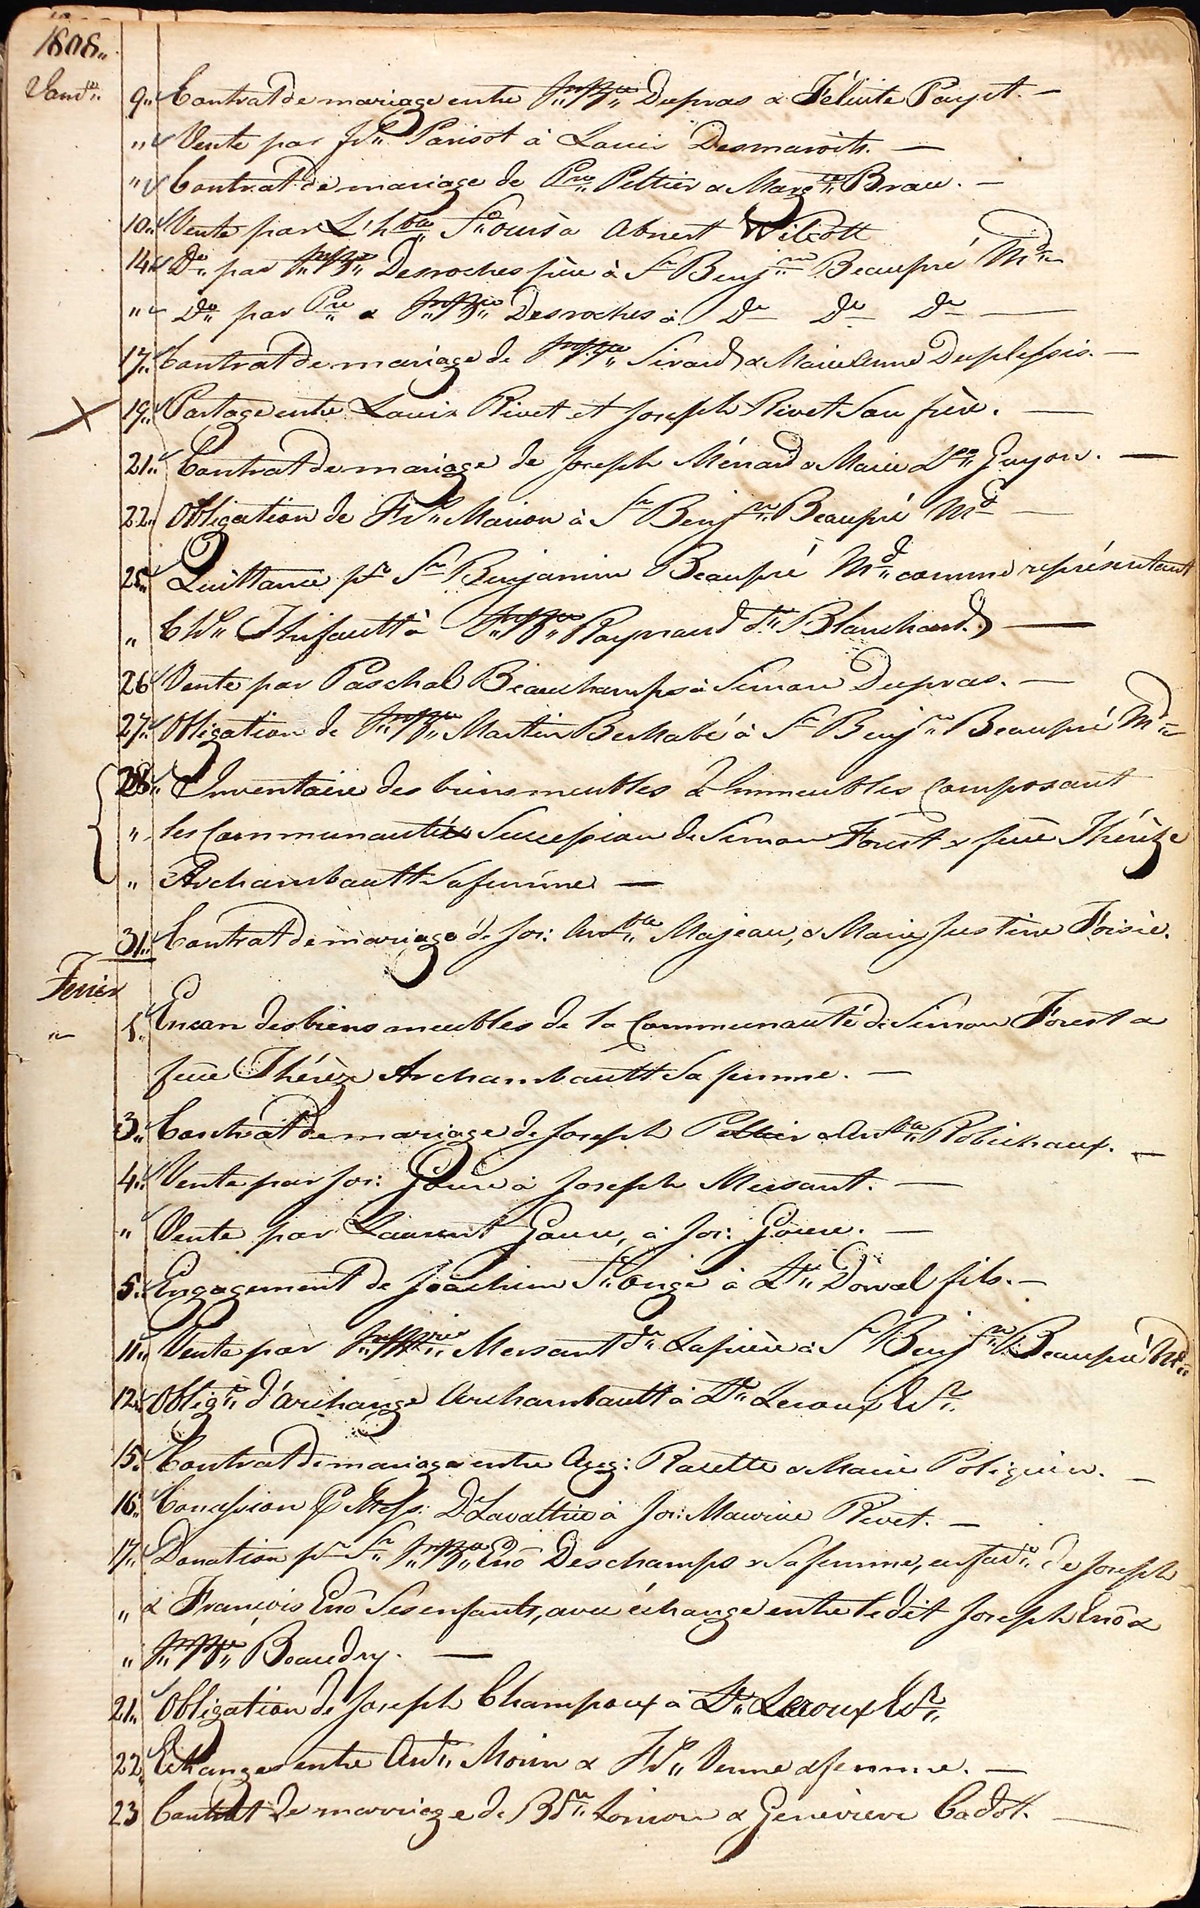 1808..
Janv..
9.. Contrat de mariage entre Jn. Bte. Dupras & Félicite Payet. —
" Vente par Frs. Parisot à Louis Desmaroits. —
" Contrat de mariage de Pre. Peltier & Margte. Brau. —
10.. Vente par à Abnert Wilcott
14.. Do. par Jn. Bte. Desroches père à Sr. Benjn. Beaupré Md. —
" Do. par Pre. & Jn. Bte. Desroches à Do. Do. Do. —
17.. Contrat de mariage de Jn. Bte. Sirard & Marie Anne Duplessis. —
X 19.. Partage entre Louis Rivet et Joseph Rivet Son frère. —
21.. Contrat de mariage de Joseph Ménard & Marie Lse. Guyon. —
22.. Obligation de Frs. Marion à Sr. Benjn. Beaupré Md. —
25.. Quittance pr. Sr. Benjamin Beaupré Md. comme représentant
" Chs. Thifault à Jn. Bte. Raynaud dit Blanchard. —
26 Vente par Paschal Beauchamps à Simon Dupras. —
27.. Obligation de Jn. Bte. Martin Bernabé à Sr. Benjn. Beaupré Md.
28.. Inventaire des biens meubles & Immeubles Composant
" les Communauté & Succession de Simon Forest & feue Thérèze
" Archambault Sa femme —
31.. Contrat de mariage de Jos: Antne. Majeau, & Marie Justine Foisie.
Fevier
" 1.. Encan des biens meubles de la Communauté de Simon Forest &
feue Thérèze Archambault Sa femme. —
3.. Contrat de mariage de Joseph Peltier & Robichaux. —
4.. Vente par Jos: Goure à Joseph Mersant. —
" Vente par Laurent Goure, à Jos: Goure. —
5.. Engagement de Joachim St. Onge à Lt. Dorval fils. —
11.. Vente par Mersant dit Lapière à Sr. Benjn. Beaupré Md.
12.. Obligon. d'Archange Archambault à Lt. Leroux Esr.
15.. Contrat de mariage entre Aug: Rasette & Marie Poliquin. —
16.. Concession p Mess: D. Lavaltrie à Jos: Maurice Rivet. —
17.. Donation pr. Sr. Jn. Bte. Enô Deschamps & Sa femme, en favr. de Joseph
" & François Enô Ses enfants, avec échange entre ledit Joseph Enô &
" Jn. Bte. Beaudry. —
21.. Obligation de Joseph Champoux à Lt. Leroux Esr.
22.. Echange entre Ante. Morin & Frs. Venne & femme. —
23 Contrat de marriage de Bte. Loirion & Genevieve Cadot. —